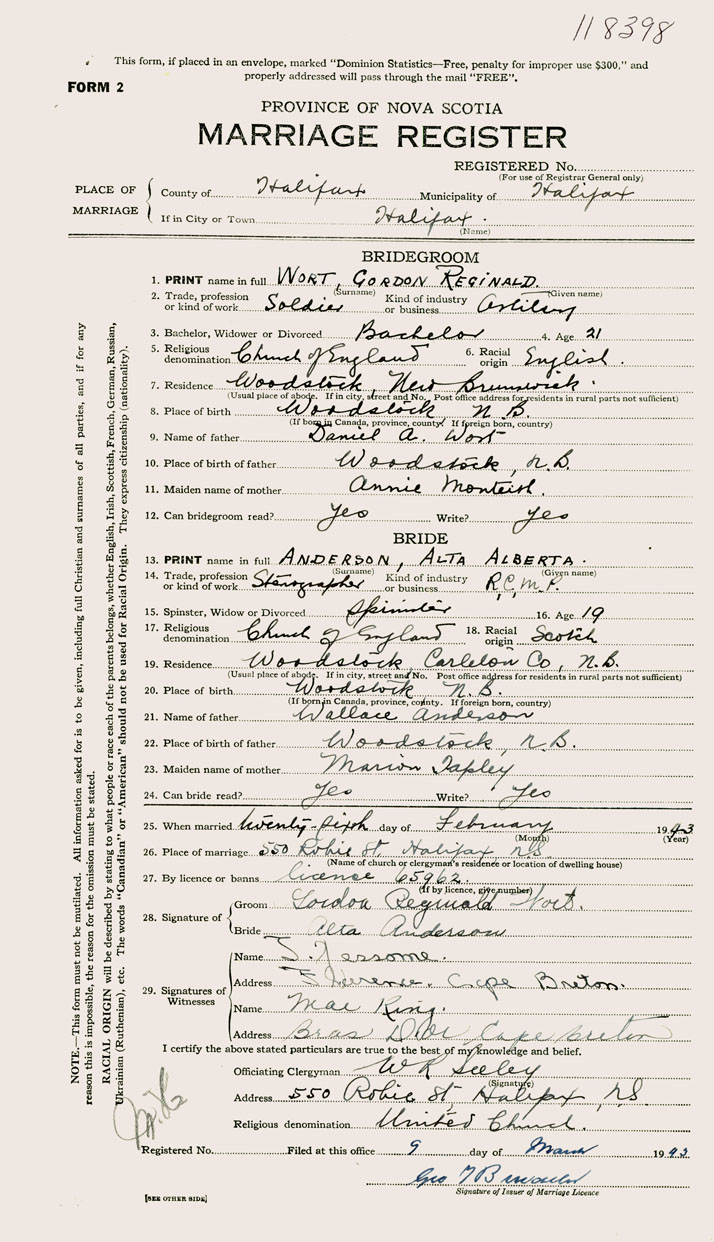 118398
This form, if placed in an envelope, marked "Dominion Statistics—Free, penalty for improper use $300," and
properly addressed will pass through the mail "FREE".
FORM 2
PROVINCE OF NOVA SCOTIA
MARRIAGE REGISTER
REGISTERED No.
(For use of Registrar General only)
PLACE OF MARRIAGE
County of Halifax Municipality of Halifax
If in City or Town Halifax.
(Name)
BRIDEGROOM
1. PRINT name in full WORT, GORDON REGINALD.
(Surname) (Given name)
2. Trade, profession or kind of work Soldier Kind of industry or business Artillery
3. Bachelor, Widower or Divorced Bachelor 4. Age 21
5. Religious denomination Church of England 6. Racial origin English.
7. Residence Woodstock, New Brunswick.
(Usual place of abode. If in city, street and No. Post office address for residents in rural parts not sufficient)
8. Place of birth Woodstock N.B.
(If born in Canada, province, county. If foreign born, country)
9. Name of father Daniel A. Wort
10. Place of birth of father Woodstock, N.B.
11. Maiden name of mother Annie Monteith.
12. Can bridegroom read? Yes Write? Yes
BRIDE
13. PRINT name in full ANDERSON, ALTA ALBERTA.
(Surname) (Given name)
14. Trade, profession or kind of work Stenographer Kind of industry or business R.C.M.P.
15. Spinster, Widow or Divorced Spinster 16. Age 19
17. Religious denomination Church of England 18. Racial origin Scotch
19. Residence Woodstock, Carleton Co, N.B.
(Usual place of abode. If in city, street and No. Post office address for residents in rural parts not sufficient)
20. Place of birth Woodstock N.B.
(If born in Canada, province, county. If foreign born, country)
21. Name of father Wallace Anderson
22. Place of birth of father Woodstock, N.B.
23. Maiden name of mother Marion Tapley
24. Can bride read? Yes Write? Yes
25. When married twenty-sixth day of February 1943
(Month) (Year)
26. Place of marriage 550 Robie St, Halifax N.S.
(Name of church or clergyman's residence or location of dwelling house)
27. By licence or banns license 65962
(If by licence, give number)
28. Signature of
Groom Gordon Reginald Wort.
Bride Alta Anderson
29. Signatures of Witnesses
Name J. Jessome.
Address Florence. Cape Breton.
Name Mae King.
Address Bras D'Or, Cape Breton
I certify the above stated particulars are true to the best of my knowledge and belief.
Officiating Clergyman W R Seeley
(Signature)
Address 550 Robie St, Halifax, N.S.
Religious denomination United Church.
Registered No. Filed at this office 9 day of March 1943
Geo
Signature of Issuer of Marriage Licence
[SEE OTHER SIDE]
NOTE.—This form must not be mutilated. All information asked for is to be given, including full Christian and surnames of all parties, and if for any
reason this is impossible, the reason for the omission must be stated.
RACIAL ORIGIN will be described by stating to what people or race each of the parents belongs, whether English, Irish, Scottish, French, German, Russian,
Ukrainian (Ruthenian), etc. The words "Canadian" or "American" should not be used for Racial Origin. They express citizenship (nationality).